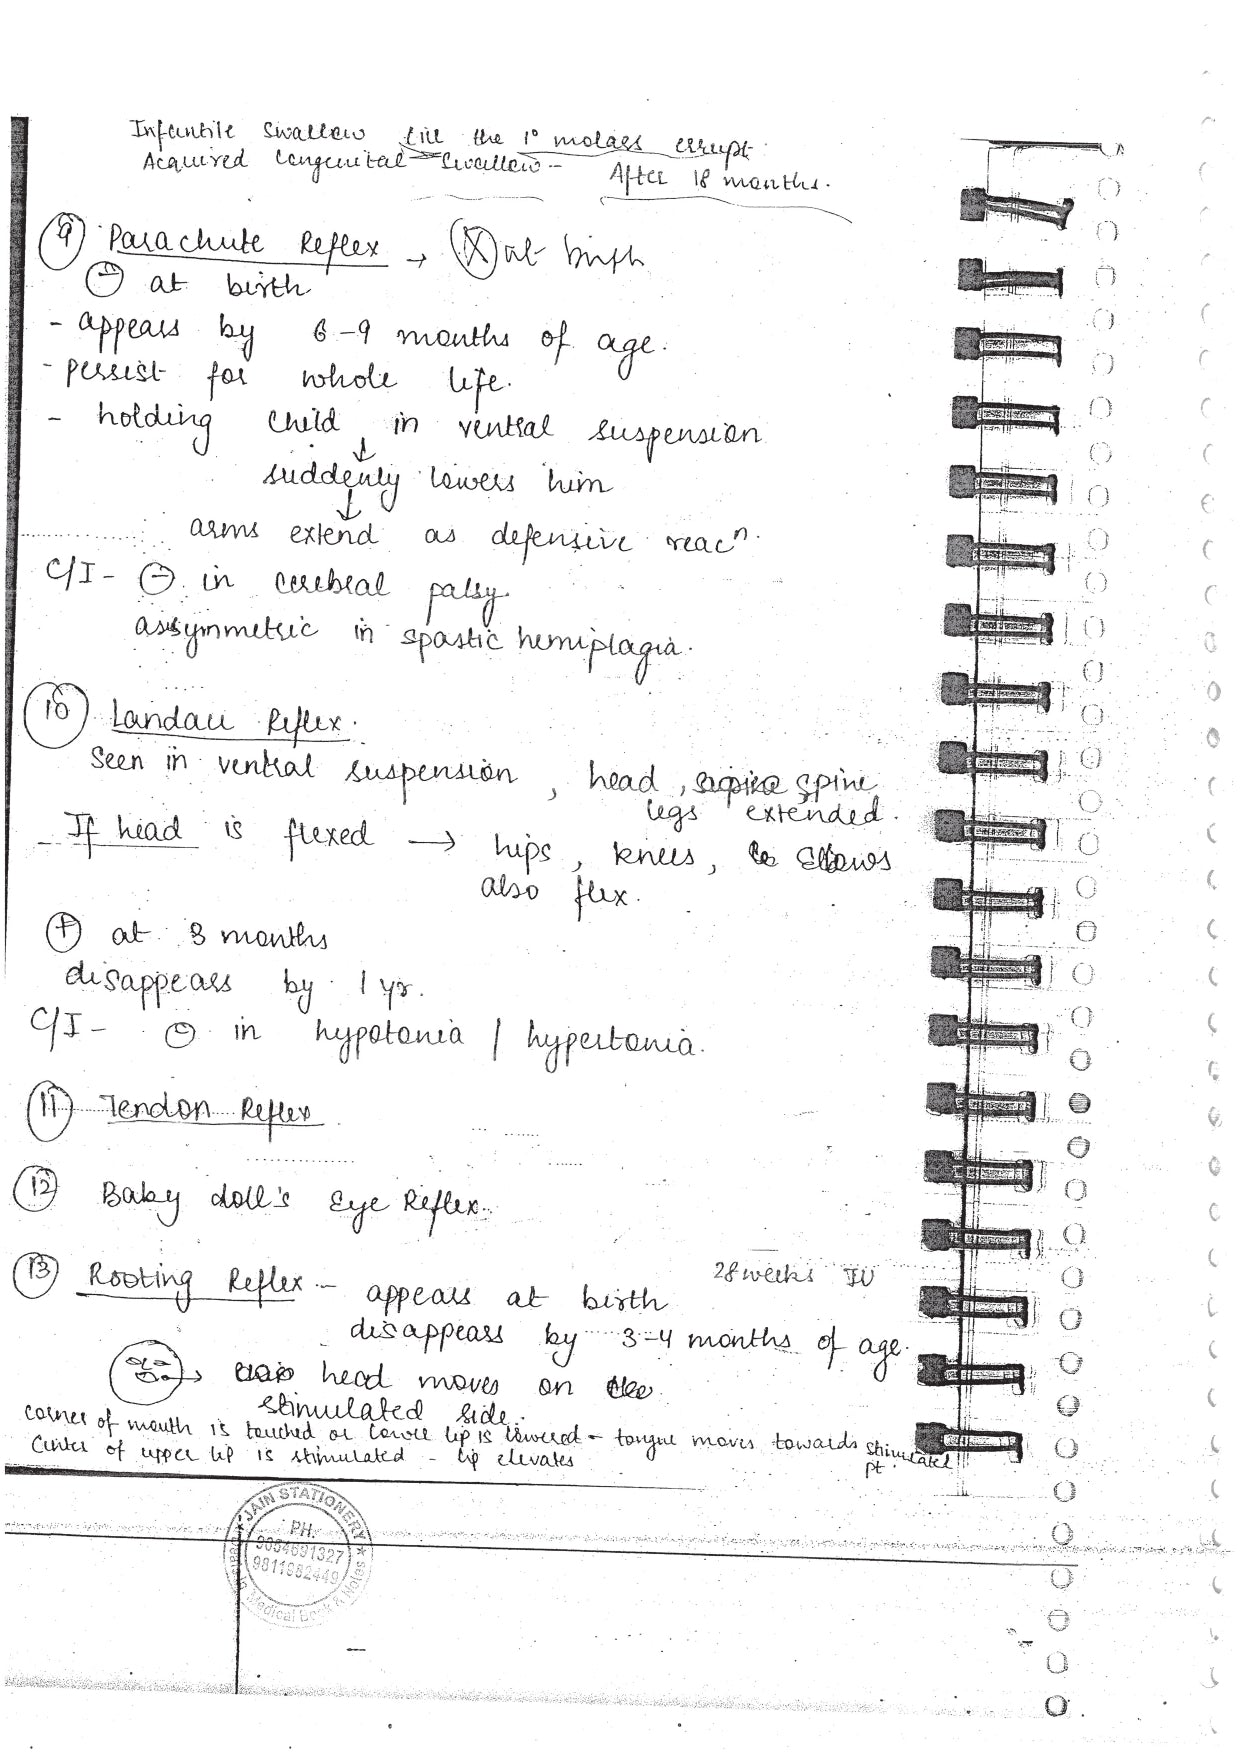 Infantile Swallow till the 1° molars errupt.
Acquired Congenital Swallow - After 18 months.
9 Parachute Reflex → X at birth
⊖ at birth
- appears by 6-9 months of age.
- persist for whole life.
- holding child in ventral suspension
↓
suddenly lowers him
↓
arms extend as defensive reacⁿ.
C/I - ⊖ in cerebral palsy.
assymmetric in spastic hemiplagia.
10 Landau Reflex.
Seen in ventral suspension, head, spine
legs extended.
If head is flexed → hips, knees, Elbows
also flex.
⊕ at 3 months
disappears by 1 yr.
C/I - ⊖ in hypotonia / hypertonia.
11 Tendon Reflex
12 Baby doll's Eye Reflex.
13 Rooting Reflex - appears at birth 28 weeks IU
disappears by 3-4 months of age.
→ head moves on the
stimulated side.
corner of mouth is touched or lower lip is lowered - tongue moves towards stimulated
pt.
Center of upper lip is stimulated - lip elevates
JAIN STATIONERY
PH.
9811682449
Medical Book & Notes